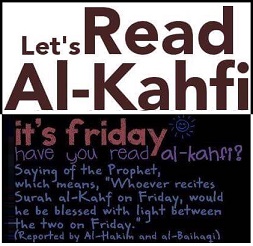 Let's Read
Al-Kahfi
it's friday
have you read al-kahfi?
Saying of the Prophet,
which means, "Whoever recites
Surah al-Kahf on Friday, would
he be blessed with light between
the two on Friday."
(Reported by Al-Hakim and al-Baihaqi)